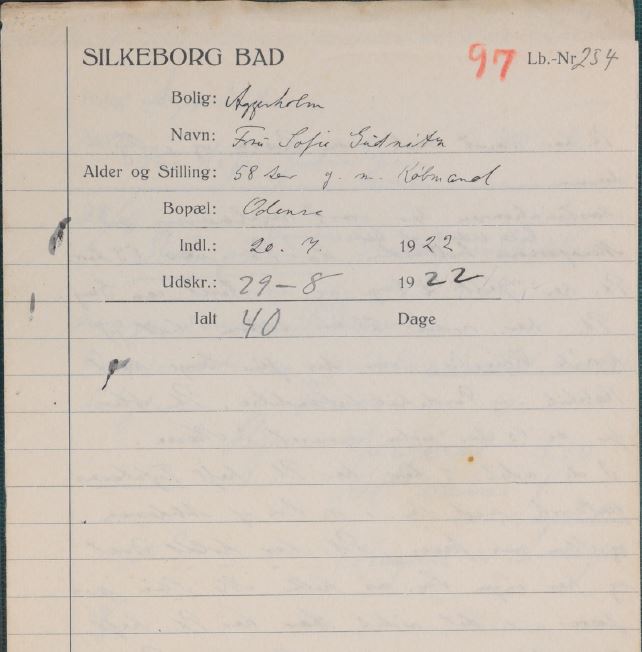 SILKEBORG BAD 97 Lb.-Nr 234
Bolig: Aggerholm
Navn: Fru Sofie
Alder og Stilling: 58 Aar g. m. Købmand
Bopæl: Odense
Indl.: 20. 7. 1922
Udskr.: 29-8 1922
Ialt 40 Dage